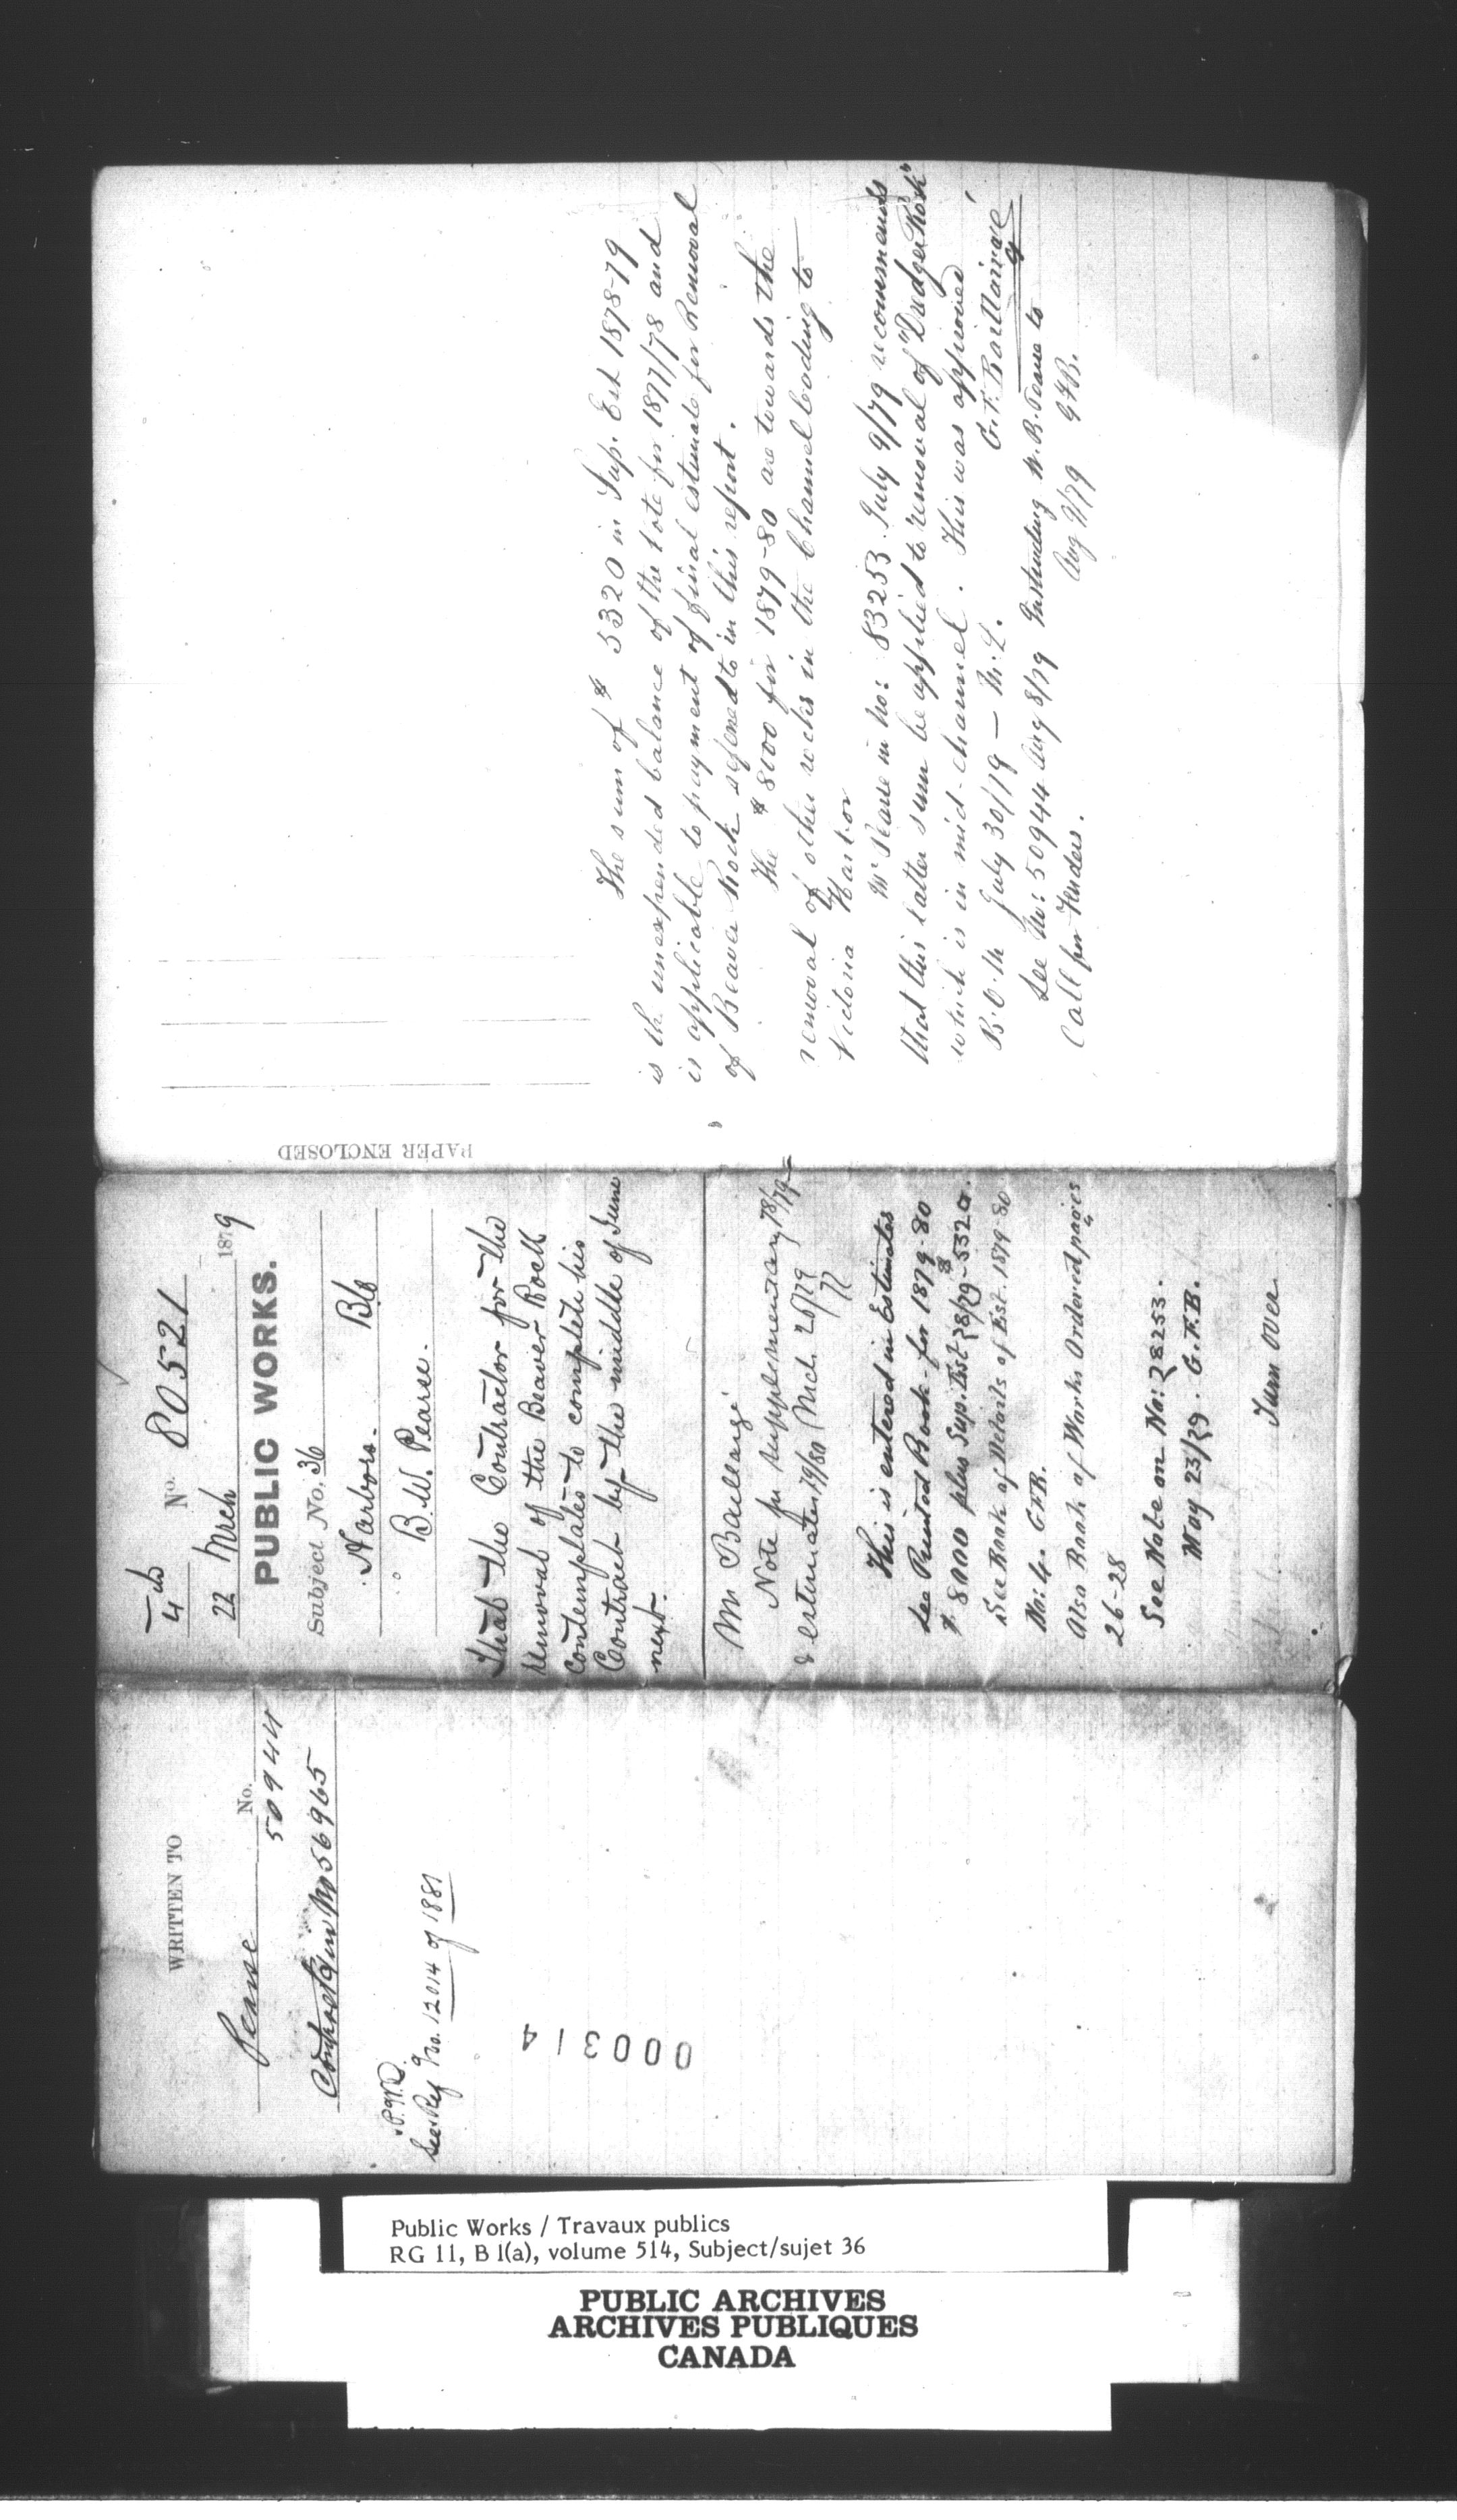 WRITTEN TO
No.
Pearse 50944
Contract in No 56965
P.W.D.
See Ref No. 12014 of 1881
000314
4th No. 80521
22 Mrch 1879
PUBLIC WORKS.
Subject No. 36
Harbors. B/C
B.W. Pearse.
That the Contractor for the
removal of the Beaver Rock
contemplates to complete his
Contract by the middle of June
next.
Mr Baillairgé
Note for supplementary 78/79
& estimates 79/80 Mch 26/79
This is entered in Estimates
See Printed Book for 1879-80
$8000 plus Sup. Est 78/79 - $5320.
See Book of Details of Est. 1879-80
No: 4. GFB.
Also Book of Works Ordered pages
26-28
See Note on No: 78253.
May 23/79. G.F.B.
Turn over
PAPER ENCLOSED
The sum of $5320 in Sup. Est 1878-79
is the unexpended balance of the vote for 1877/78 and
is applicable to payment of final estimate for Removal
of Beaver Rock referred to in this report.
The $8000 for 1879-80 are towards the
removal of other rocks in the Channel leading to
Victoria Harbor
Mr Pearse in No: 83253 July 9/79 recommends
that this latter sum be applied to removal of "Dredger Rock"
which is in mid-channel. This was approved
B.O.M July 30/79 — M.L. G.F. Baillairgé
See No: 50944 Aug 8/79 Instructing B. Pearse to
Call for Tenders. Aug 9/79 GFB.
Public Works / Travaux publics
RG 11, B 1(a), volume 514, Subject/sujet 36
PUBLIC ARCHIVES
ARCHIVES PUBLIQUES
CANADA